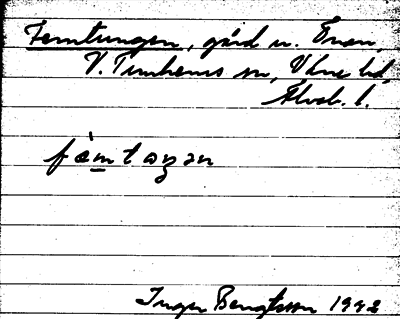 Femtungen, gård u. Önan,
V. Tunhems sn, Väne hd,
Älvsb. l.
fæ̀mtoŋən
Inger Bengtsson 1942